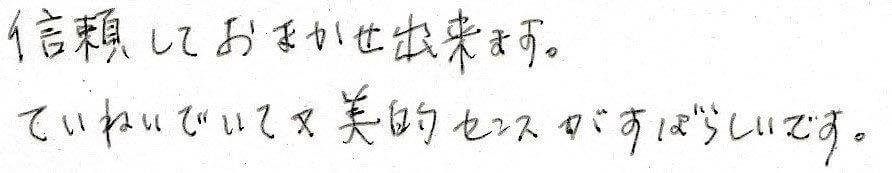 信頼しておまかせ出来ます。
ていねいでいて又美的センスがすばらしいです。